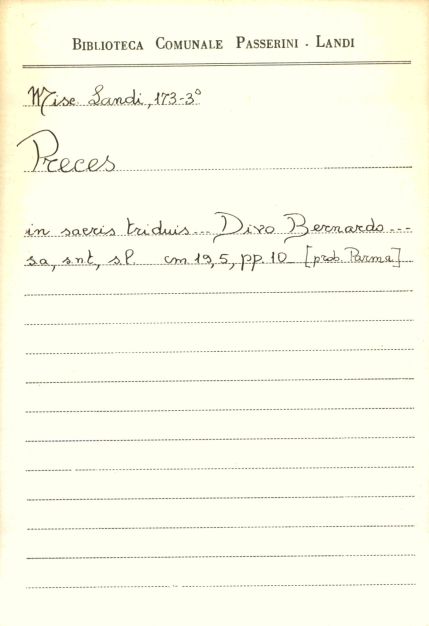 BIBLIOTECA COMUNALE PASSERINI - LANDI
Misc Landi, 173-3°
Preces
in sacris triduis... Divo Bernardo...
sa, snt, sl. cm 19,5, pp. 10 [prob. Parma]